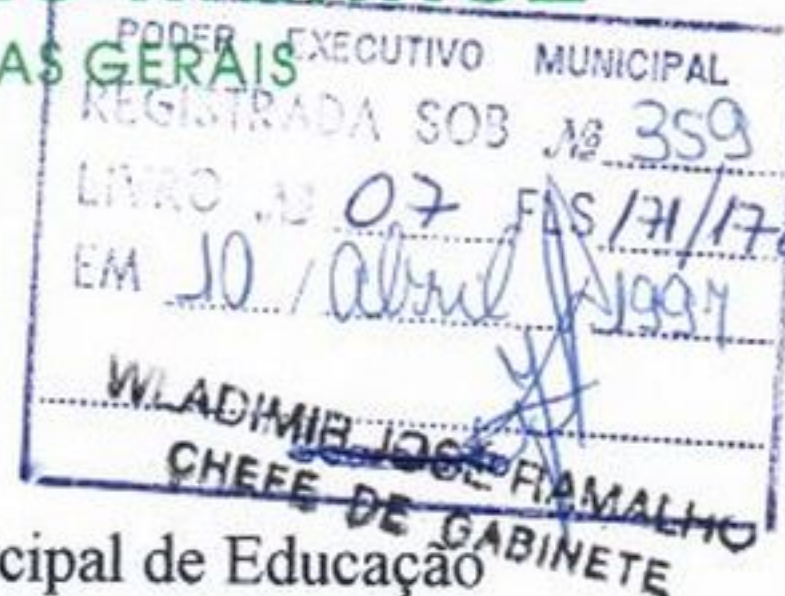 AS GERAIS
PODER EXECUTIVO MUNICIPAL
REGISTRADA SOB Nº 359
LIVRO Nº 07 FLS 171/17
EM 10 / abril / 1997
WLADIMIR JOSÉ RAMALHO
CHEFE DE GABINETE
cipal de Educação